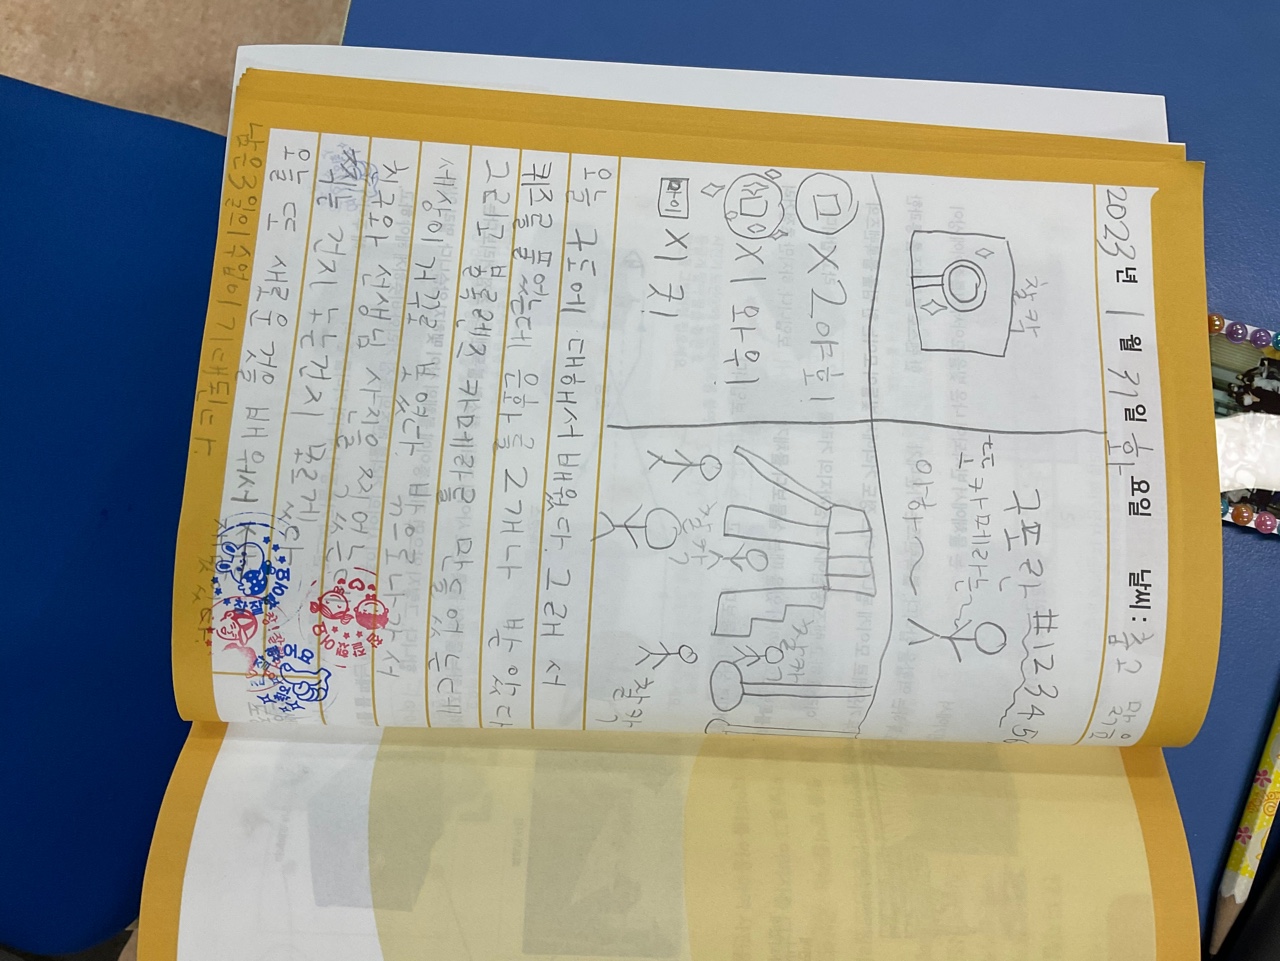 2023년 1월 31일 화요일 날씨: 춥고 맑음
찰칵
구포란 #123456
또 카메라는
아하~
ㅁ X2 야호!
ㅁ X1 와우!
마이 X1 굿!
찰칵
찰칵
찰칵
오늘 구도에 대해서 배웠다. 그래서
퀴즈를 풀었는데 은화를 2개나 받았다
그리고 볼록렌즈 카메라를 만들었는데
세상이 거꾸로 보였다. 밖으로 나가서
친구와 선생님 사진을 찍었는데
찍는건지 노는건지 모르겠다.
오늘 또 새로운 것을 배워서
재밌었다.
남은 3일의 수업이 기대된다.
참 잘했어요